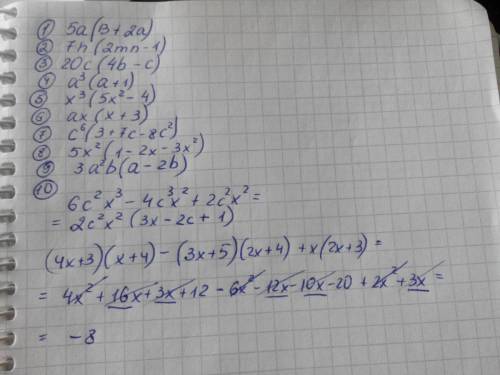 ① 5a(B+2a)
② 7n(2mn-1)
③ 20c(4b-c)
④ a³(a+1)
⑤ x³(5x²-4)
⑥ ax(x+3)
⑦ c⁶(3+7c-8c²)
⑧ 5x²(1-2x-3x²)
⑨ 3a²b(a-2b)
⑩
6c²x³-4c³x²+2c²x²=
=2c²x²(3x-2c+1)
(4x+3)(x+4)-(3x+5)(2x+4)+x(2x+3)=
=4x²+16x+3x+12-6x²-12x-10x-20+2x²+3x=
= -8